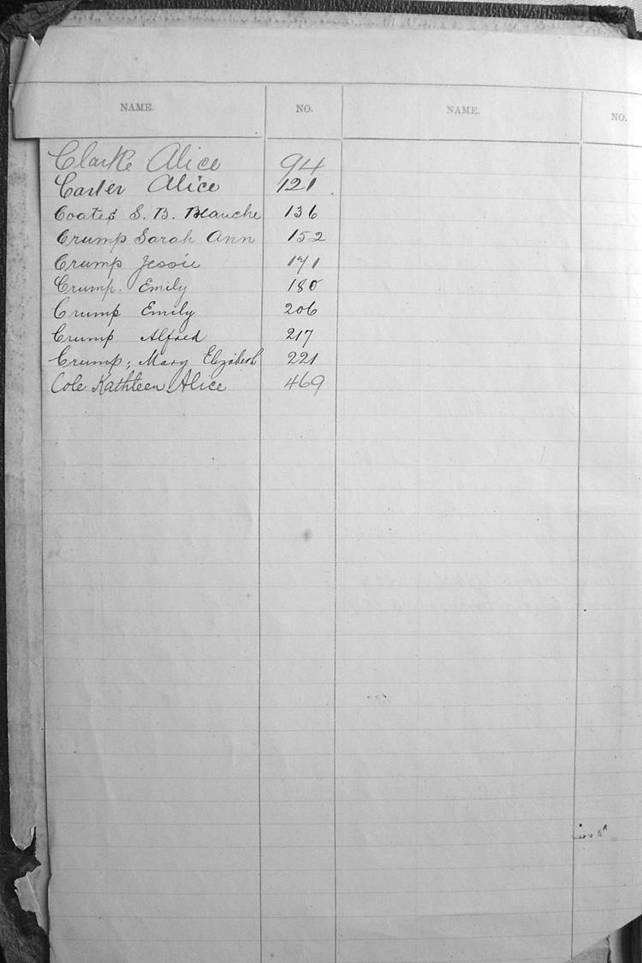 NAME. NO. NAME. NO.
Clarke Alice 94
Carter Alice 121
Coates S. B. Blanche 136
Crump Sarah Ann 152
Crump Jessie 171
Crump. Emily 180
Crump Emily 206
Crump Alfred 217
Crump, Mary Elizabeth 221
Cole Kathleen Alice 469